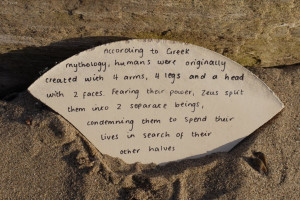 According to Greek
mythology, humans were originally
created with 4 arms, 4 legs and a head
with 2 faces. Fearing their power, Zeus split
them into 2 separate beings,
condemning them to spend their
lives in search of their
other halves